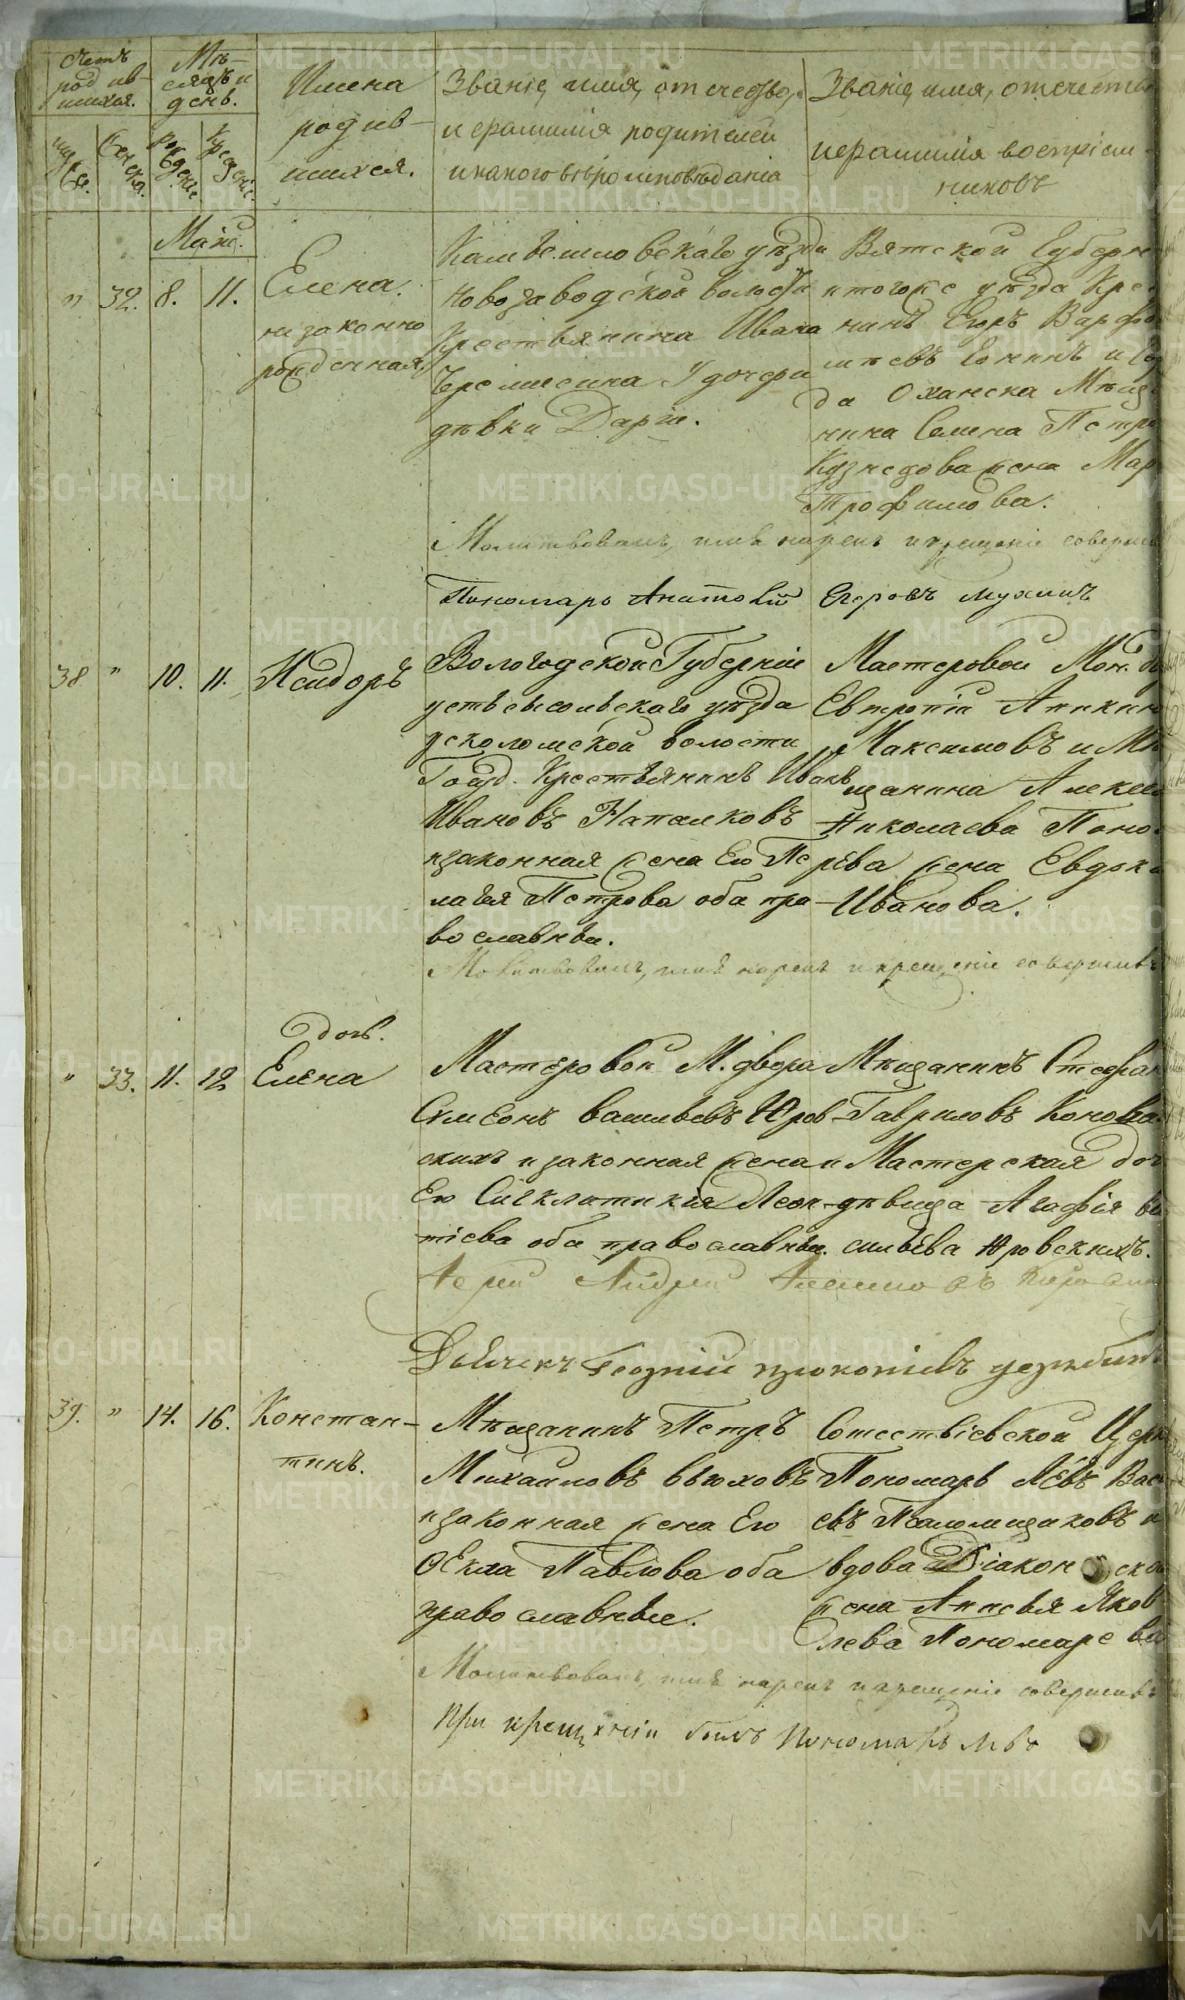 Счетъ родив-шихся.
Мѣ-сяцъ и день.
Имена родив-шихся.
Званіе, имя, отчество,
и фамилія родителей
и какого вѣроисповѣданія
Званіе, имя, отчество
и фамилія воспріем-
никовъ
Муж. Женска. рожденія Крещенія.
Маія.
" 32. 8. 11.
Елена.
незаконно
рожденная,
Камышловскаго уѣзда
Новозаводской волости
Крестьянина Ивана
дочери
дѣвки Дарьи.
Вятской Губерн
и того же уѣзда Кре
нинъ Егоръ Варфо
и Го
да Оханска Мѣща
нина Семена Петро
Кузнецова жена Мар
Трофимова.
Молитвовалъ, имя нарекъ и крещеніе соверши
Пономарь Анатолій
38 " 10. 11.
Исидоръ
Вологодской Губерніи
устьсысольскаго уѣзда
волости
Госуд. Крестьянинъ Иванъ
Ивановъ Напалковъ
и законная жена Его Пе
лагея Петрова оба пра
вославные.
Мастеровой Мон. дв
Евтропій Аникин
Максимовъ и Мѣ
щанина Алексѣя
Николаева Поно
рёва жена Евдок
Иванова.
Молитвовалъ, имя нарекъ и крещеніе совершилъ
дочь.
" 33. 11. 12
Елена
Мастеровой М. двора
Симеонъ Васильевъ Юров-
скихъ и законная жена
Ео Сигклитикія Леон-
тіева оба православные.
Мѣщанинъ Стефан
Гавриловъ Конова
и Мастерская доч
дѣвица Агафія Ва
сильева Юровскихъ.
Іерей Андрей
Дьячекъ
39. " 14. 16.
Констан-
тинъ.
Мѣщанинъ Петръ
Михайловъ Вьюховъ
и законная жена Его
Ѳекла Павлова оба
православные.
Сошествіевской Церк
Пономарь Лёвъ Вас
евъ Псаломщиковъ и
вдова Діаконская
жена Анисья Яков
лева Пономарева
Молитвовалъ, имя нарекъ и крещеніе совершилъ
При крещеніи былъ Пономарь Левъ
METRIKI.GASO-URAL.RU